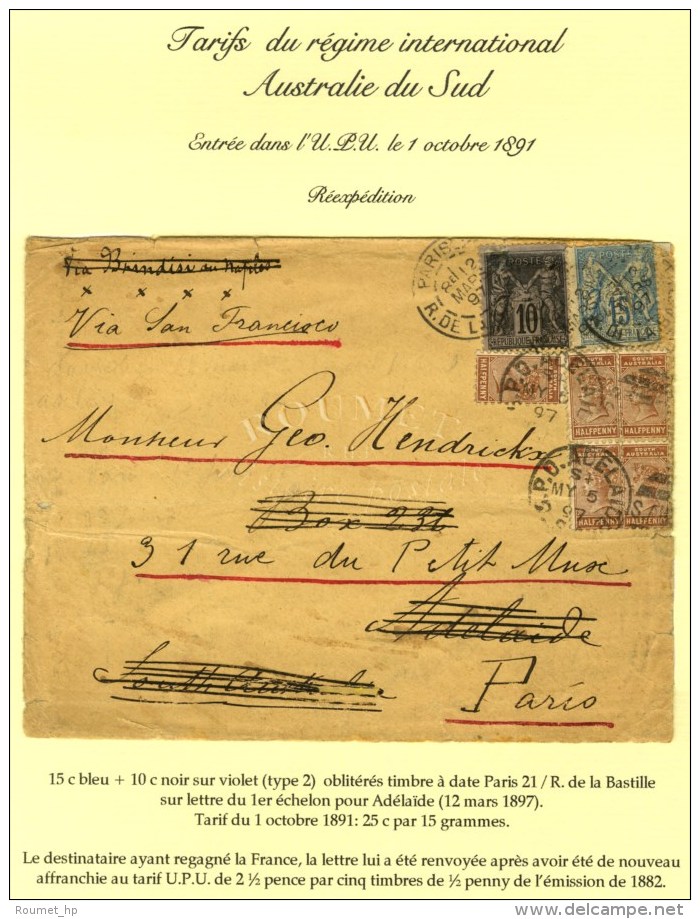 Tarifs du régime international
Australie du Sud
Entrée dans l'U.P.U. le 1 octobre 1891
Réexpédition
Via Brindisi ou Naples
x x x x
Via San Francisco
PARIS
12
MARS
97
R. DE L
POSTES
10
REPUBLIQUE FRANCAISE
POSTES
15
HALFPENNY
SOUTH AUSTRALIA
SOUTH AUSTRALIA
HALFPENNY
HALFPENNY
HALFPENNY
HALFPENNY
G.P.O. ADELAIDE
MY 5
97
G.P.O. ADELAIDE
MY 5
97
ROUMET
Monsieur Geo. Hendrickx
Box 231
31 rue du Petit Musc
Adelaide
South Australia
Paris
15 c bleu + 10 c noir sur violet (type 2) oblitérés timbre à date Paris 21 / R. de la Bastille
sur lettre du 1er échelon pour Adélaïde (12 mars 1897).
Tarif du 1 octobre 1891: 25 c par 15 grammes.
Le destinataire ayant regagné la France, la lettre lui a été renvoyée après avoir été de nouveau
affranchie au tarif U.P.U. de 2 ½ pence par cinq timbres de ½ penny de l'émission de 1882.
Roumet_hp
delcampe.net